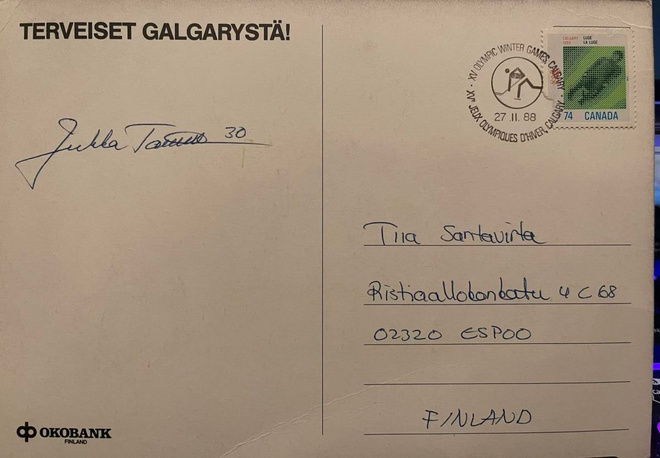 TERVEISET GALGARYSTÄ!
Jukka Tammi 30
XV OLYMPIC WINTER GAMES, CALGARY
XVes JEUX OLYMPIQUES D'HIVER, CALGARY
27 II. 88
CALGARY 1988
LUGE
LA LUGE
74 CANADA
Tiia Santavirta
Ristiaallokonkatu 4 C 68
02320 ESPOO
FINLAND
OKOBANK
FINLAND